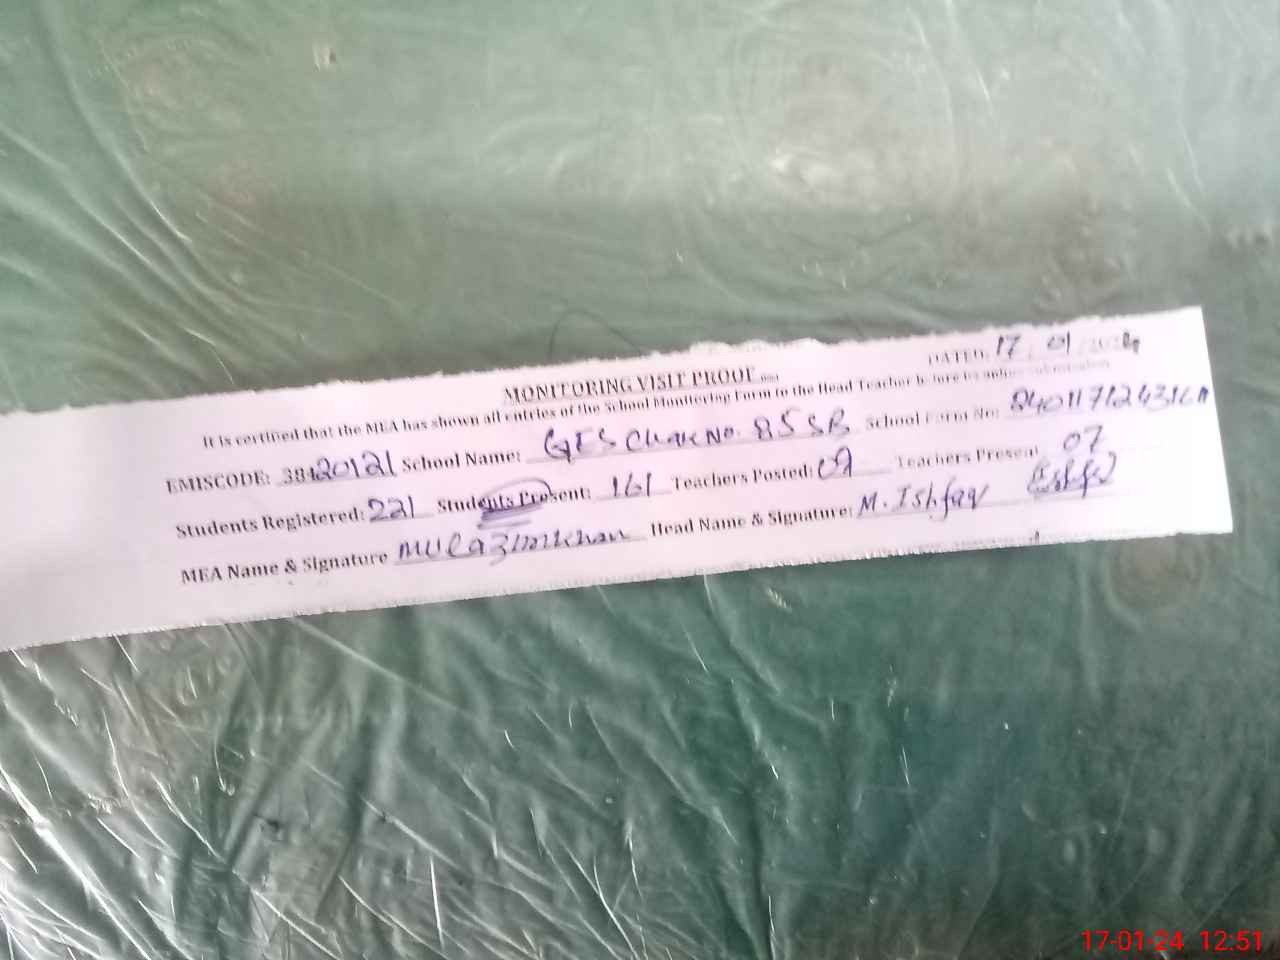 MONITORING VISIT PROOF
DATED: 17 / 01 / 2024
It is certified that the MEA has shown all entries of the School Monitoring Form to the Head Teacher before its online submission
EMISCODE: 38420121 School Name: GES Chak No. 85 SB School Form No:
Students Registered: 221 Students Present: 161 Teachers Posted: 09 Teachers Present 07
MEA Name & Signature Mulazim Khan Head Name & Signature: M. Ishfaq
17-01-24 12:51